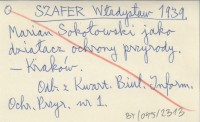 O SZAFER Władysław 1939.
Marian Sokołowski jako
działacz ochrony przyrody.
— Kraków.
Odb. z Kwart. Biul. Inform.
Ochr. Przyr. nr 1.